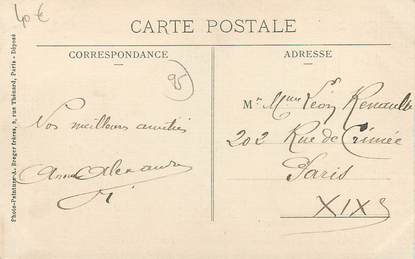 40 €
CARTE POSTALE
CORRESPONDANCE
ADRESSE
95
Mr Mme Léon Renault
Nos meilleures amitiés
202 Rue de Crimée
Paris
XIXe
Photo-Peinture A. Breger frères, 9, rue Thénard, Paris - Déposé